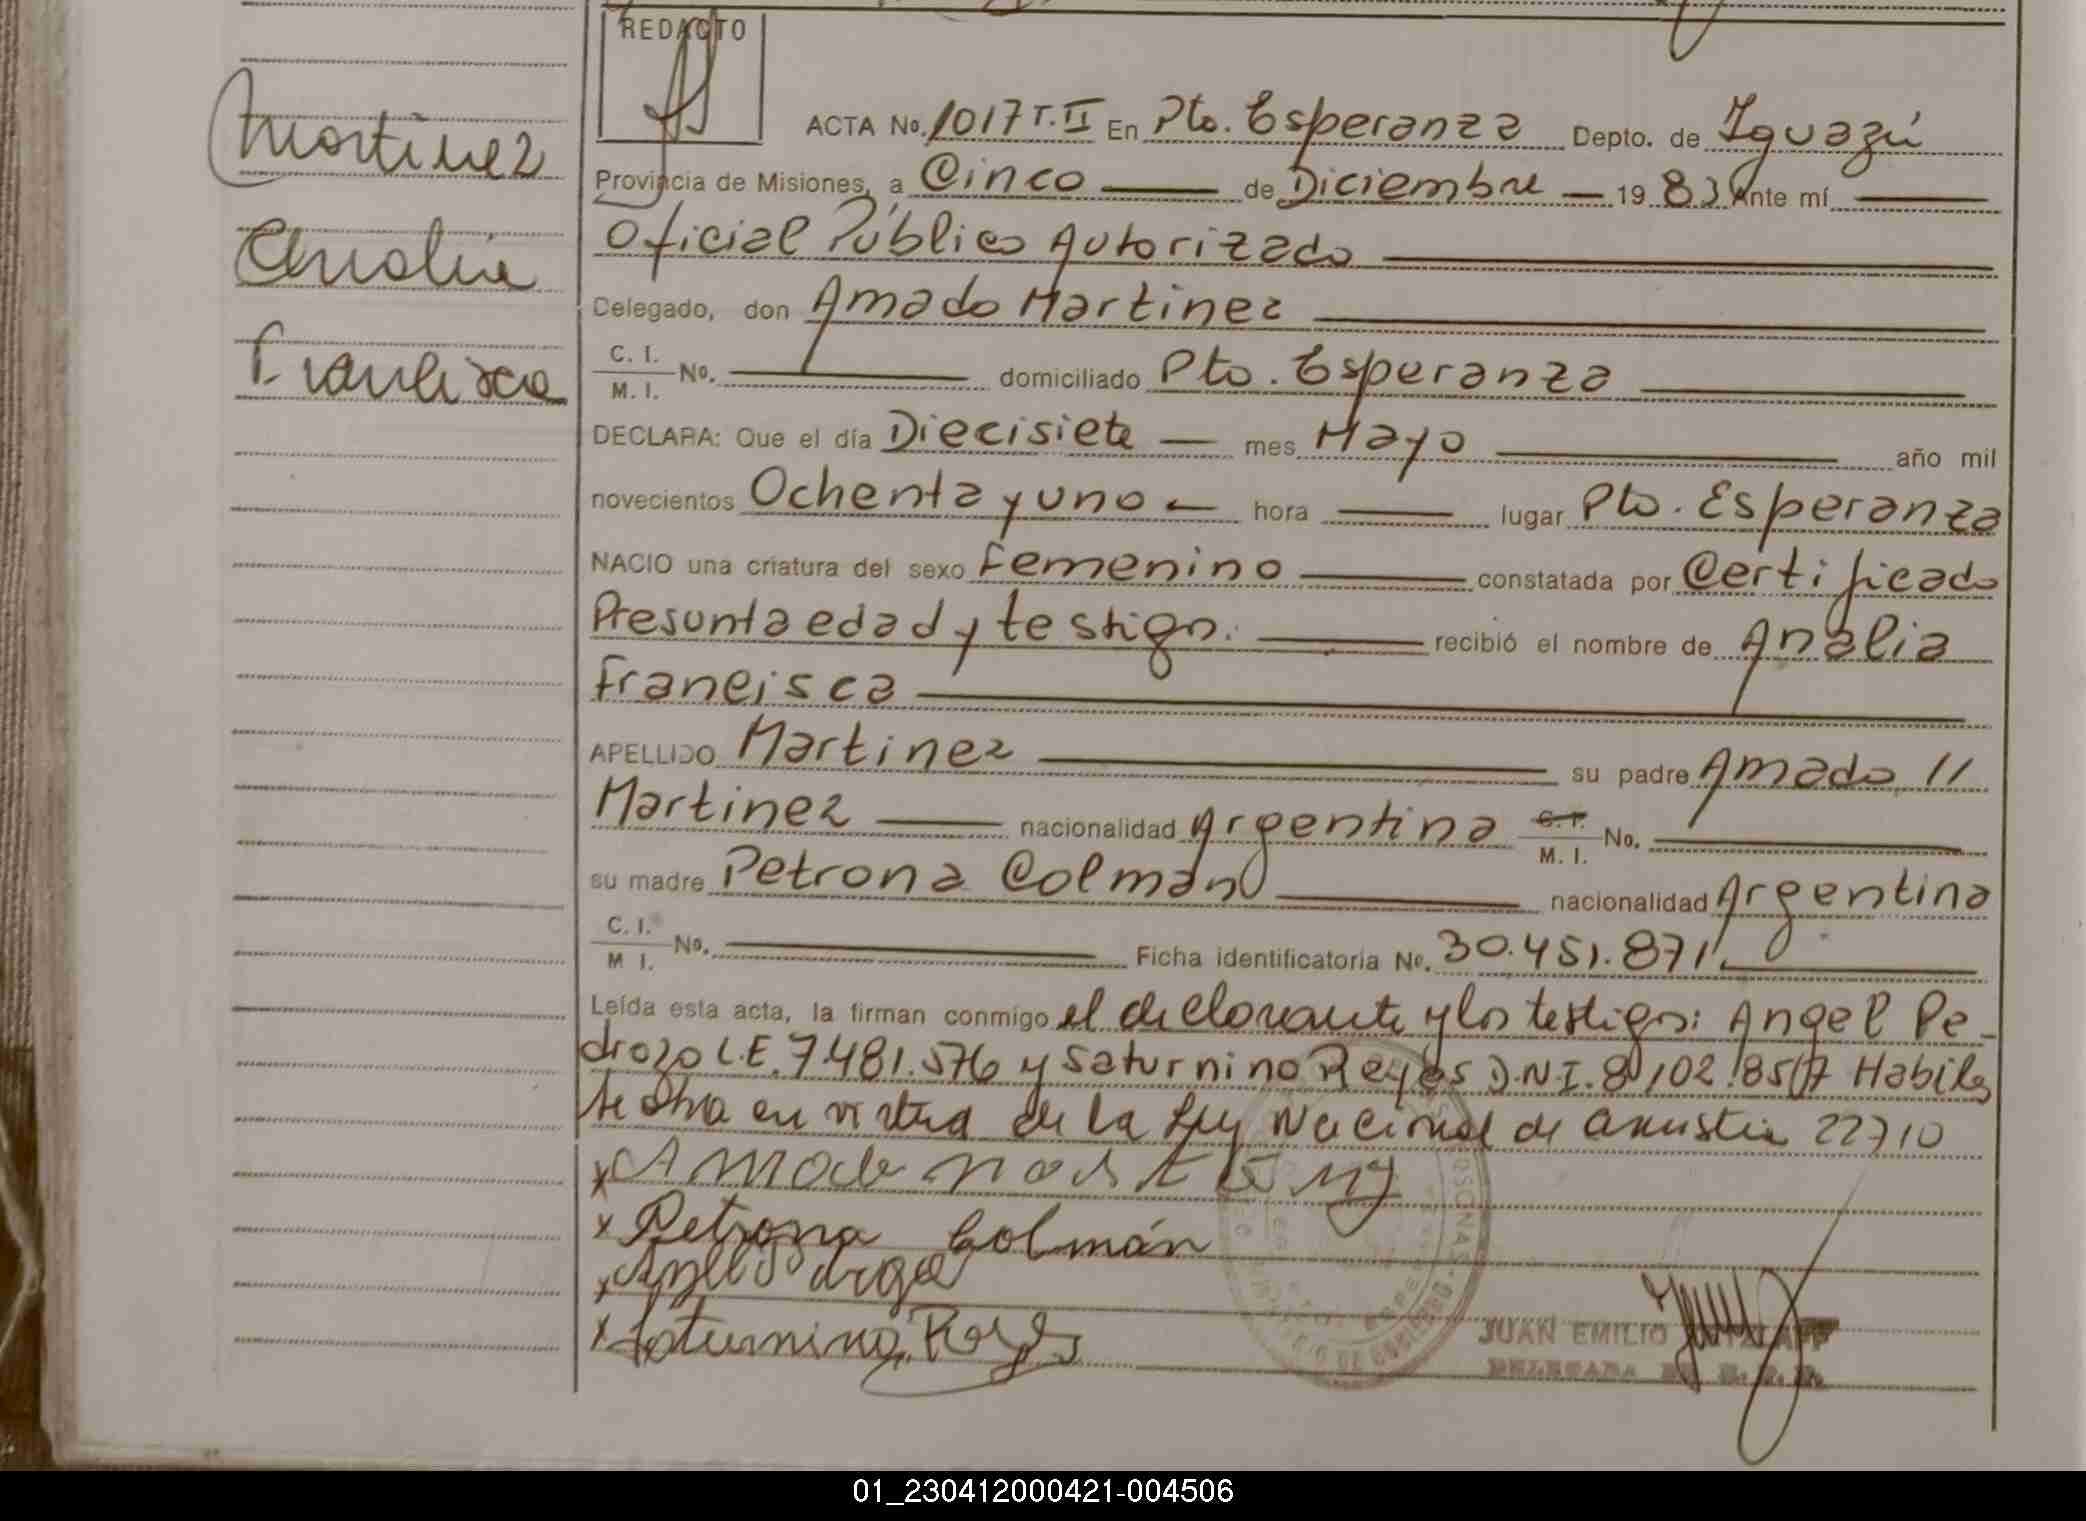 REDACTO
Martinez
Analia
Francisca
ACTA No. 1017 T. II En Pto. Esperanza Depto. de Iguazú
Provincia de Misiones, a Cinco — de Diciembre — 19 83 Ante mí —
Oficial Público Autorizado —
Delegado, don Amado Martinez —
C. I. / M. I. No. — domiciliado Pto. Esperanza —
DECLARA: Que el día Diecisiete — mes Mayo — año mil
novecientos Ochenta y uno — hora — lugar Pto. Esperanza
NACIO una criatura del sexo Femenino — constatada por Certificado
Presunta edad y testigo. — recibió el nombre de Analia
Francisca —
APELLIDO Martinez — su padre Amado //
Martinez — nacionalidad Argentina C. I. / M. I. No. —
su madre Petrona Colman — nacionalidad Argentina
C. I. / M I. No. — Ficha identificatoria No. 30.451.871 —
Leída esta acta, la firman conmigo el declarante y los testigos: Angel Pe-
drozo L.E. 7.481.576 y Saturnino Reyes D.N.I. 8.102.857 Habiles
en virtud de la Ley Nacional de amnistia 22710
x Amado
x Petrona Colmán
x
x Saturnino Reyes
JUAN EMILIO
DELEGADA
01_230412000421-004506